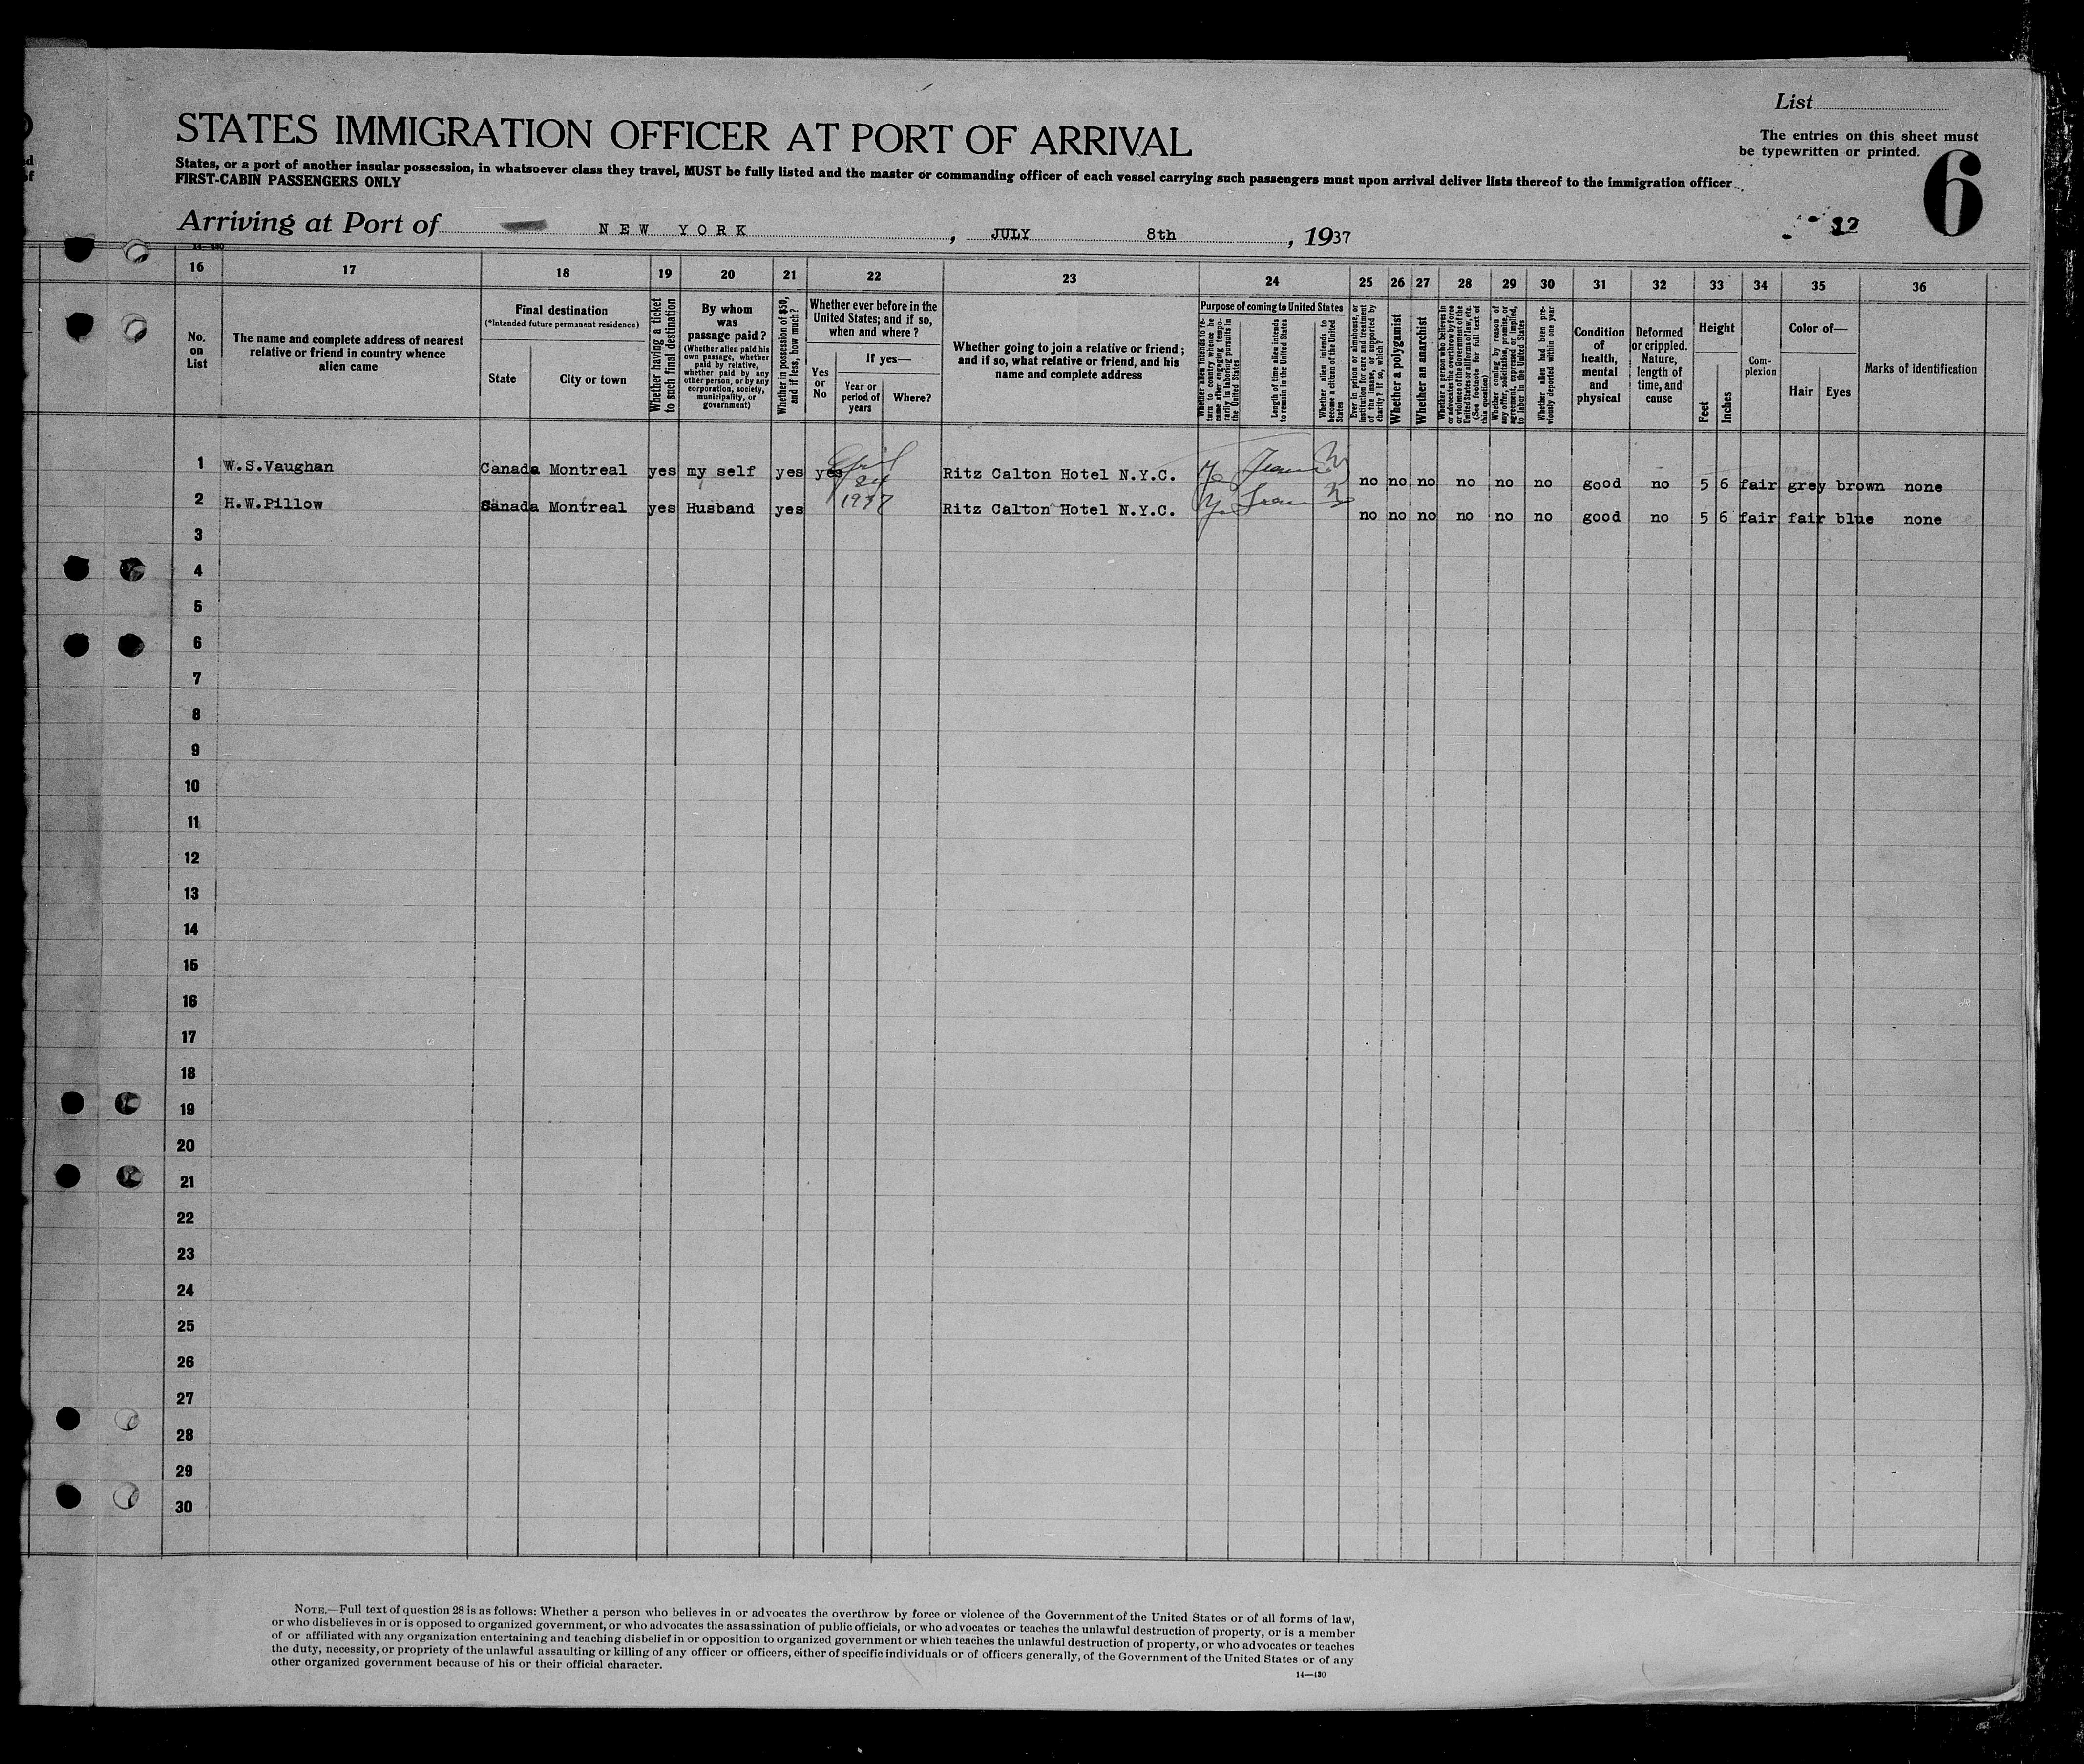 List
STATES IMMIGRATION OFFICER AT PORT OF ARRIVAL
The entries on this sheet must
be typewritten or printed.
6
States, or a port of another insular possession, in whatsoever class they travel, MUST be fully listed and the master or commanding officer of each vessel carrying such passengers must upon arrival deliver lists thereof to the immigration officer
FIRST-CABIN PASSENGERS ONLY
Arriving at Port of NEW YORK, JULY 8th, 1937
14-430
16 17 18 19 20 21 22 23 24 25 26 27 28 29 30 31 32 33 34 35 36
No.
on
List
The name and complete address of nearest
relative or friend in country whence
alien came
Final destination
(*Intended future permanent residence)
State City or town
Whether having a ticket
to such final destination
By whom
was
passage paid?
(Whether alien paid his
own passage, whether
paid by relative,
whether paid by any
other person, or by any
corporation, society,
municipality, or
government)
Whether in possession of $50,
and if less, how much?
Whether ever before in the
United States; and if so,
when and where?
Yes
or
No
If yes—
Year or
period of
years
Where?
Whether going to join a relative or friend;
and if so, what relative or friend, and his
name and complete address
Purpose of coming to United States
Whether alien intends to re-
turn to country whence he
came after engaging tempo-
rarily in laboring pursuits in
the United States
Length of time alien intends
to remain in the United States
Whether alien intends to
become a citizen of the United
States
Ever in prison or almshouse, or
institution for care and treatment
of the insane, or supported by
charity? If so, which?
Whether a polygamist
Whether an anarchist
Whether a person who believes in
or advocates the overthrow by force
or violence of the Government of the
United States or all forms of law, etc.
(See footnote for full text of
this question)
Whether coming by reason of
any offer, solicitation, promise, or
agreement, expressed or implied,
to labor in the United States
Whether alien had been pre-
viously deported within one year
Condition
of
health,
mental
and
physical
Deformed
or crippled.
Nature,
length of
time, and
cause
Height
Feet Inches
Com-
plexion
Color of—
Hair Eyes
Marks of identification
1 W.S.Vaughan Canada Montreal yes my self yes yes April 24 1937 Ritz Calton Hotel N.Y.C. no no no no no no good no 5 6 fair grey brown none
2 H.W.Pillow Canada Montreal yes Husband yes Ritz Calton Hotel N.Y.C. no no no no no no good no 5 6 fair fair blue none
3
4
5
6
7
8
9
10
11
12
13
14
15
16
17
18
19
20
21
22
23
24
25
26
27
28
29
30
NOTE.—Full text of question 28 is as follows: Whether a person who believes in or advocates the overthrow by force or violence of the Government of the United States or of all forms of law,
or who disbelieves in or is opposed to organized government, or who advocates the assassination of public officials, or who advocates or teaches the unlawful destruction of property, or is a member
of or affiliated with any organization entertaining and teaching disbelief in or opposition to organized government or which teaches the unlawful destruction of property, or who advocates or teaches
the duty, necessity, or propriety of the unlawful assaulting or killing of any officer or officers, either of specific individuals or of officers generally, of the Government of the United States or of any
other organized government because of his or their official character.
14—430